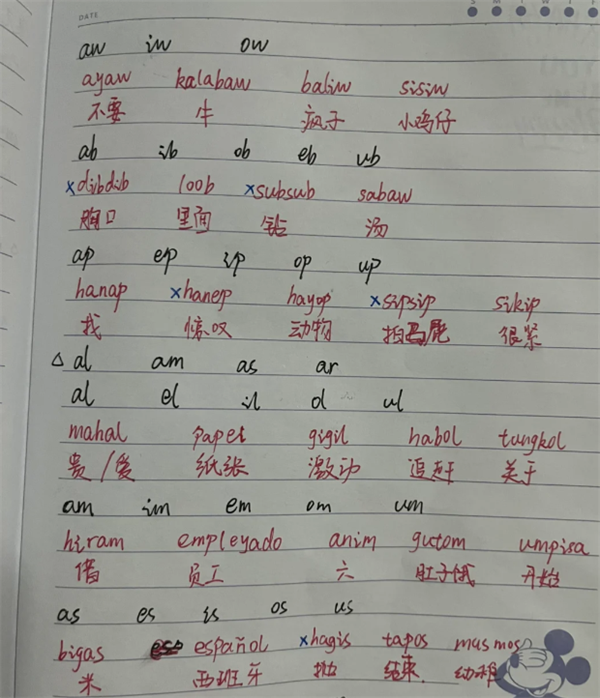 DATE S M T W T F S
aw iw ow
ayaw kalabaw baliw sisiw
不要 牛 疯子 小鸡仔
ab ib ob eb ub
xdibdib loob xsubsub sabaw
胸口 里面 钻 汤
ap ep ip op up
hanap xhanep hayop xsipsip sikip
找 惊叹 动物 拍马屁 很紧
△ al am as ar
al el il ol ul
mahal papel gigil habol tungkol
贵/爱 纸张 激动 追赶 关于
am im em om um
hiram empleyado anim gutom umpisa
借 员工 六 肚子饿 开始
as es is os us
bigas español xhagis tapos musmos
米 西班牙 抛 结束